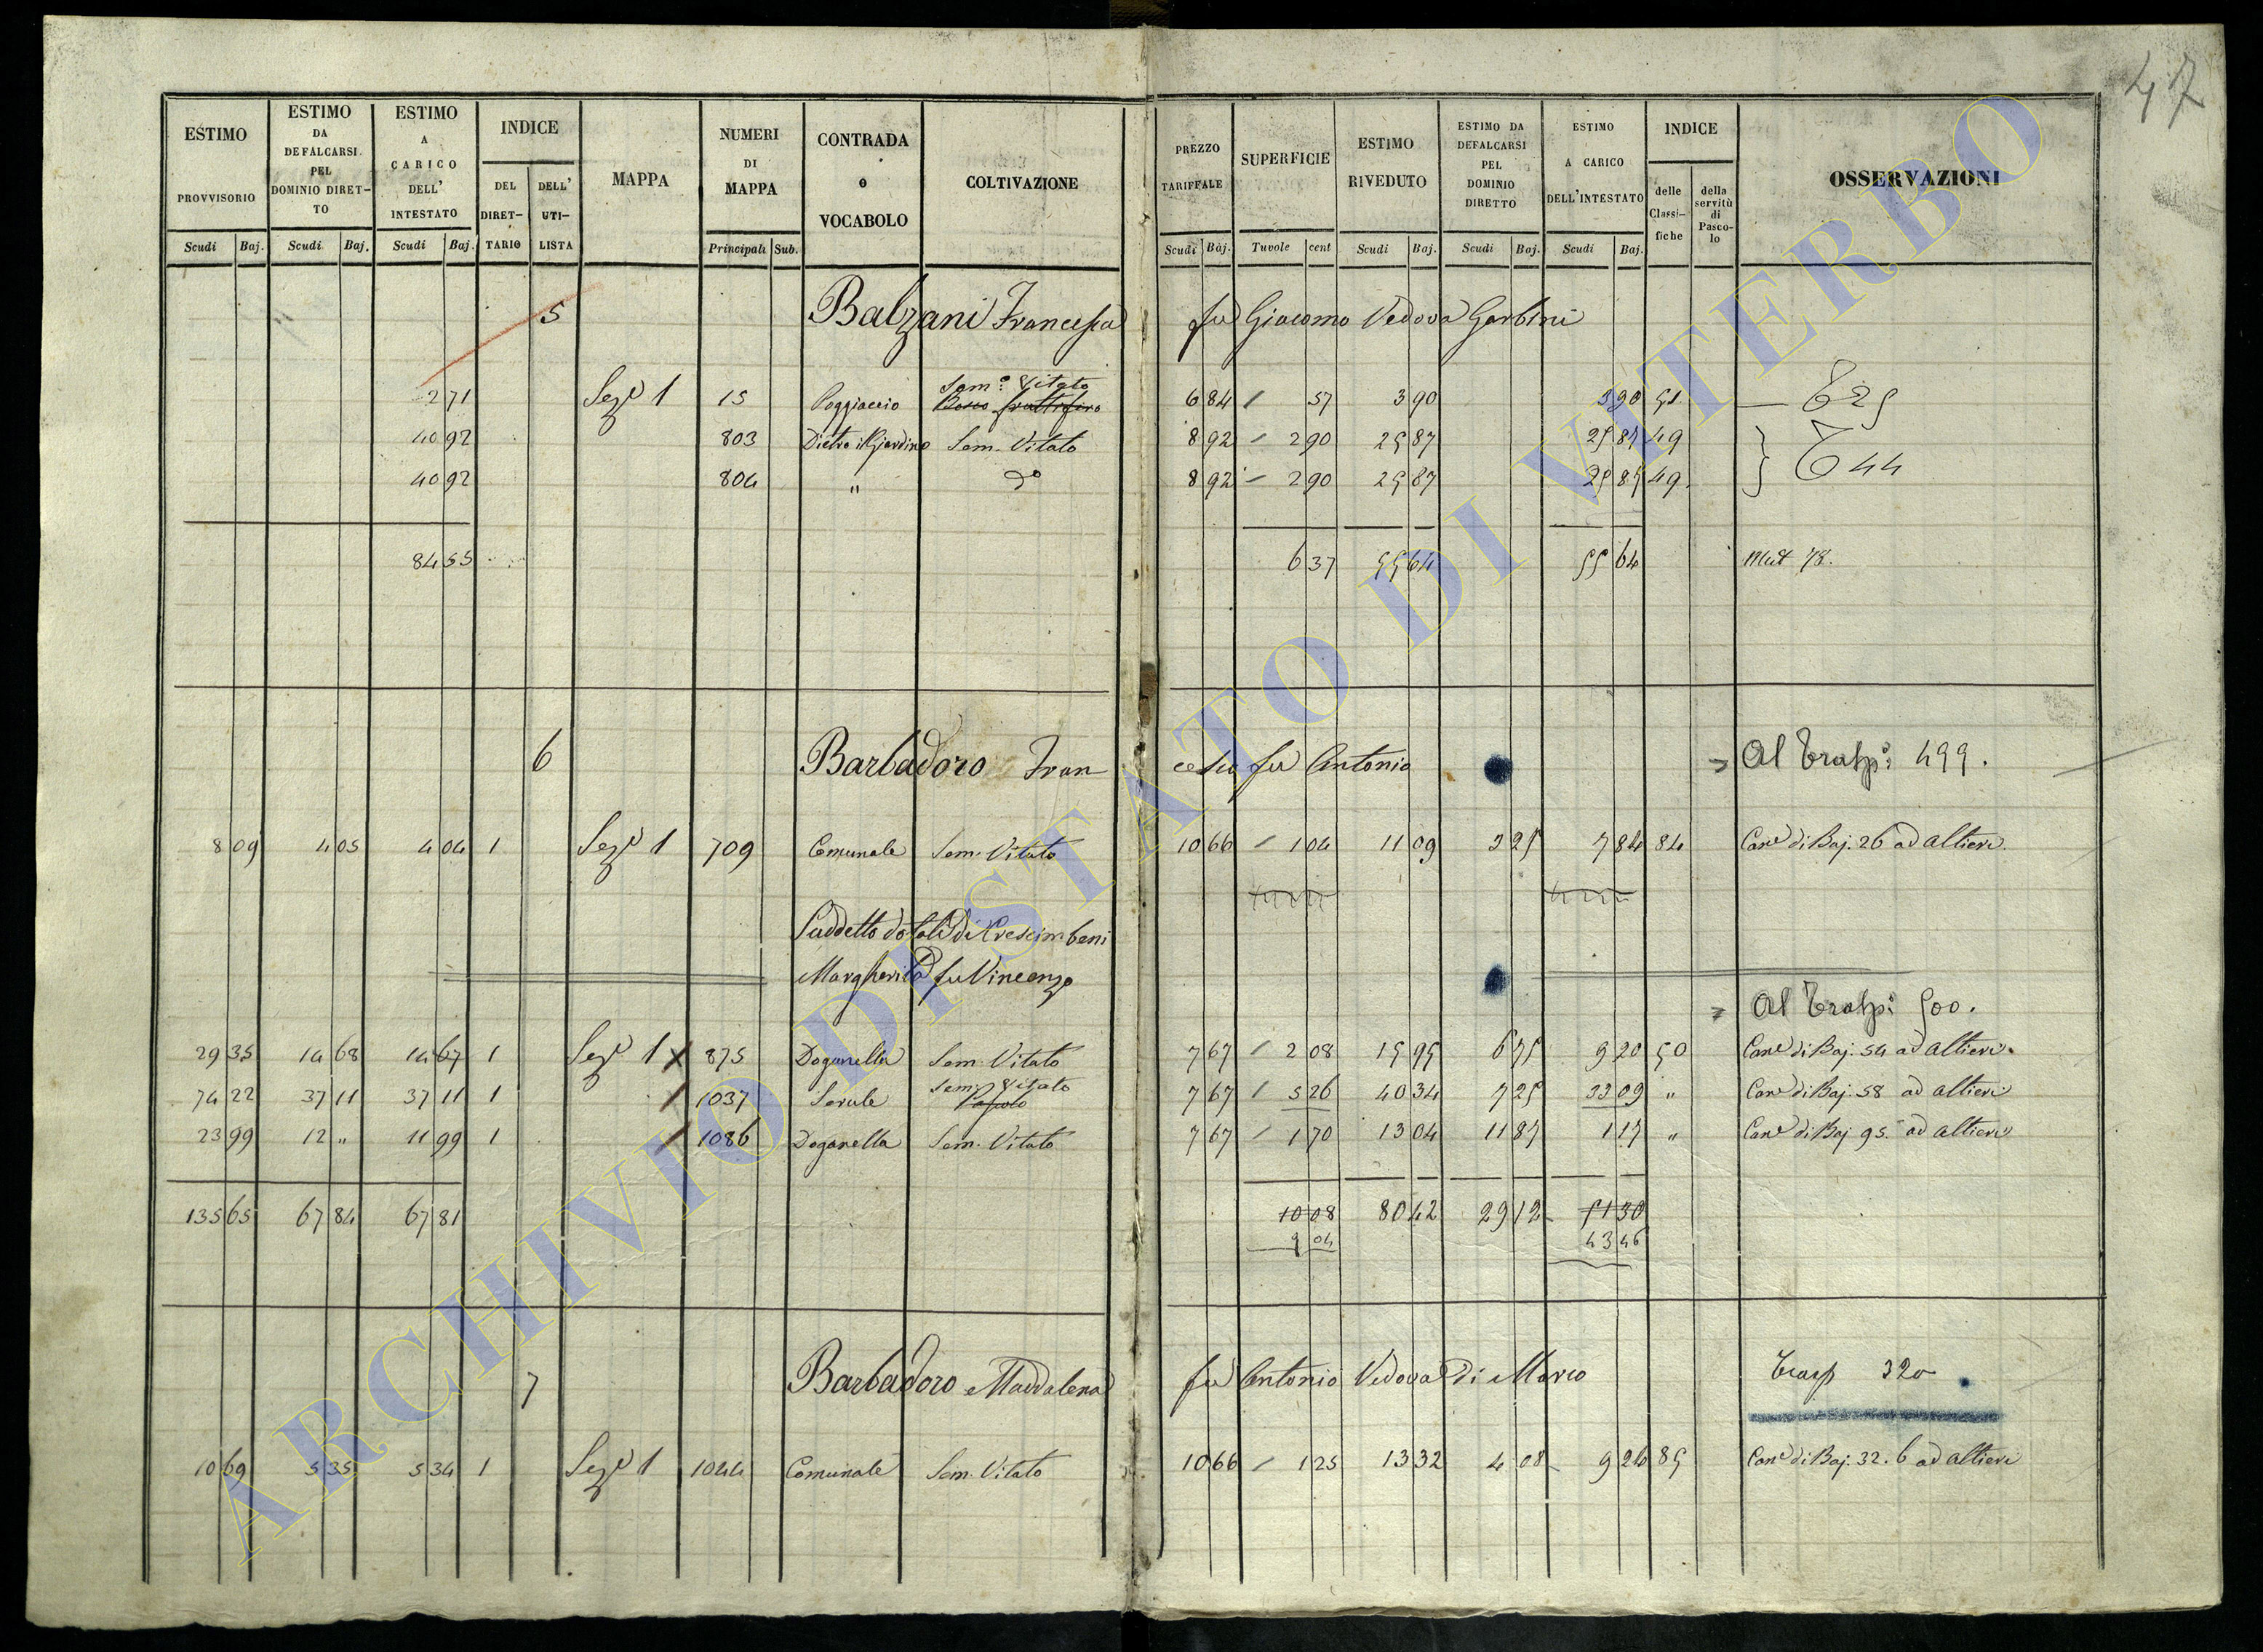 47
ESTIMO PROVVISORIO Scudi Baj.
ESTIMO DA DEFALCARSI PEL DOMINIO DIRETTO Scudi Baj.
ESTIMO A CARICO DELL' INTESTATO Scudi Baj.
INDICE DEL DIRETTARIO DELL' UTILISTA
MAPPA
NUMERI DI MAPPA Principali Sub.
CONTRADA o VOCABOLO
COLTIVAZIONE
PREZZO TARIFFALE Scudi Baj.
SUPERFICIE Tavole cent
ESTIMO RIVEDUTO Scudi Baj.
ESTIMO DA DEFALCARSI PEL DOMINIO DIRETTO Scudi Baj.
ESTIMO A CARICO DELL'INTESTATO Scudi Baj.
INDICE delle Classifiche della servitù di Pascolo
OSSERVAZIONI
5 Balzani Francesca fu Giacomo Vedova Garbini
2 71 Seze 1 15 Poggiaccio Sem. Vitato Bosco fruttifero 6 84 57 3 90 3 90 51
40 92 803 Dietro il Giardino Sem. Vitato 8 92 2 90 25 87 25 87 49
40 92 804 " do 8 92 2 90 25 87 25 87 49
84 55 6 37 55 64 55 64 Mut 78.
6 Barbadoro Francesco fu Antonio Al Trasp: 499.
8 09 4 05 4 04 1 Seze 1 709 Comunale Sem. Vitato 10 66 1 04 11 09 3 25 7 84 84 Cane di Baj. 26 ad Altieri
Suddetto dotali di Crescimbeni
Margherita fu Vincenzo
Al Trasp: 500.
29 35 14 68 14 67 1 Seze 1 875 Doganella Sem. Vitato 7 67 2 08 15 95 6 75 9 20 50 Cane di Baj. 54 ad Altieri
74 22 37 11 37 11 1 1037 Sem. Vitato Pascolo 7 67 5 26 40 34 7 25 33 09 " Cane di Baj. 58 ad Altieri
23 99 12 " 11 99 1 1086 Doganella Sem. Vitato 7 67 1 70 13 04 11 87 1 17 " Cane di Baj. 95. ad Altieri
135 65 67 84 67 81 10 08 80 42 29 12 51 30
9 04 43 46
7 Barbadoro Maddalena fu Antonio Vedova Di Marco Trasp 320
10 69 5 35 5 34 1 Seze 1 1044 Comunale Sem. Vitato 10 66 1 25 13 32 4 08 9 24 85 Cane di Baj. 32. 6 ad Altieri
ARCHIVIO DI STATO DI VITERBO